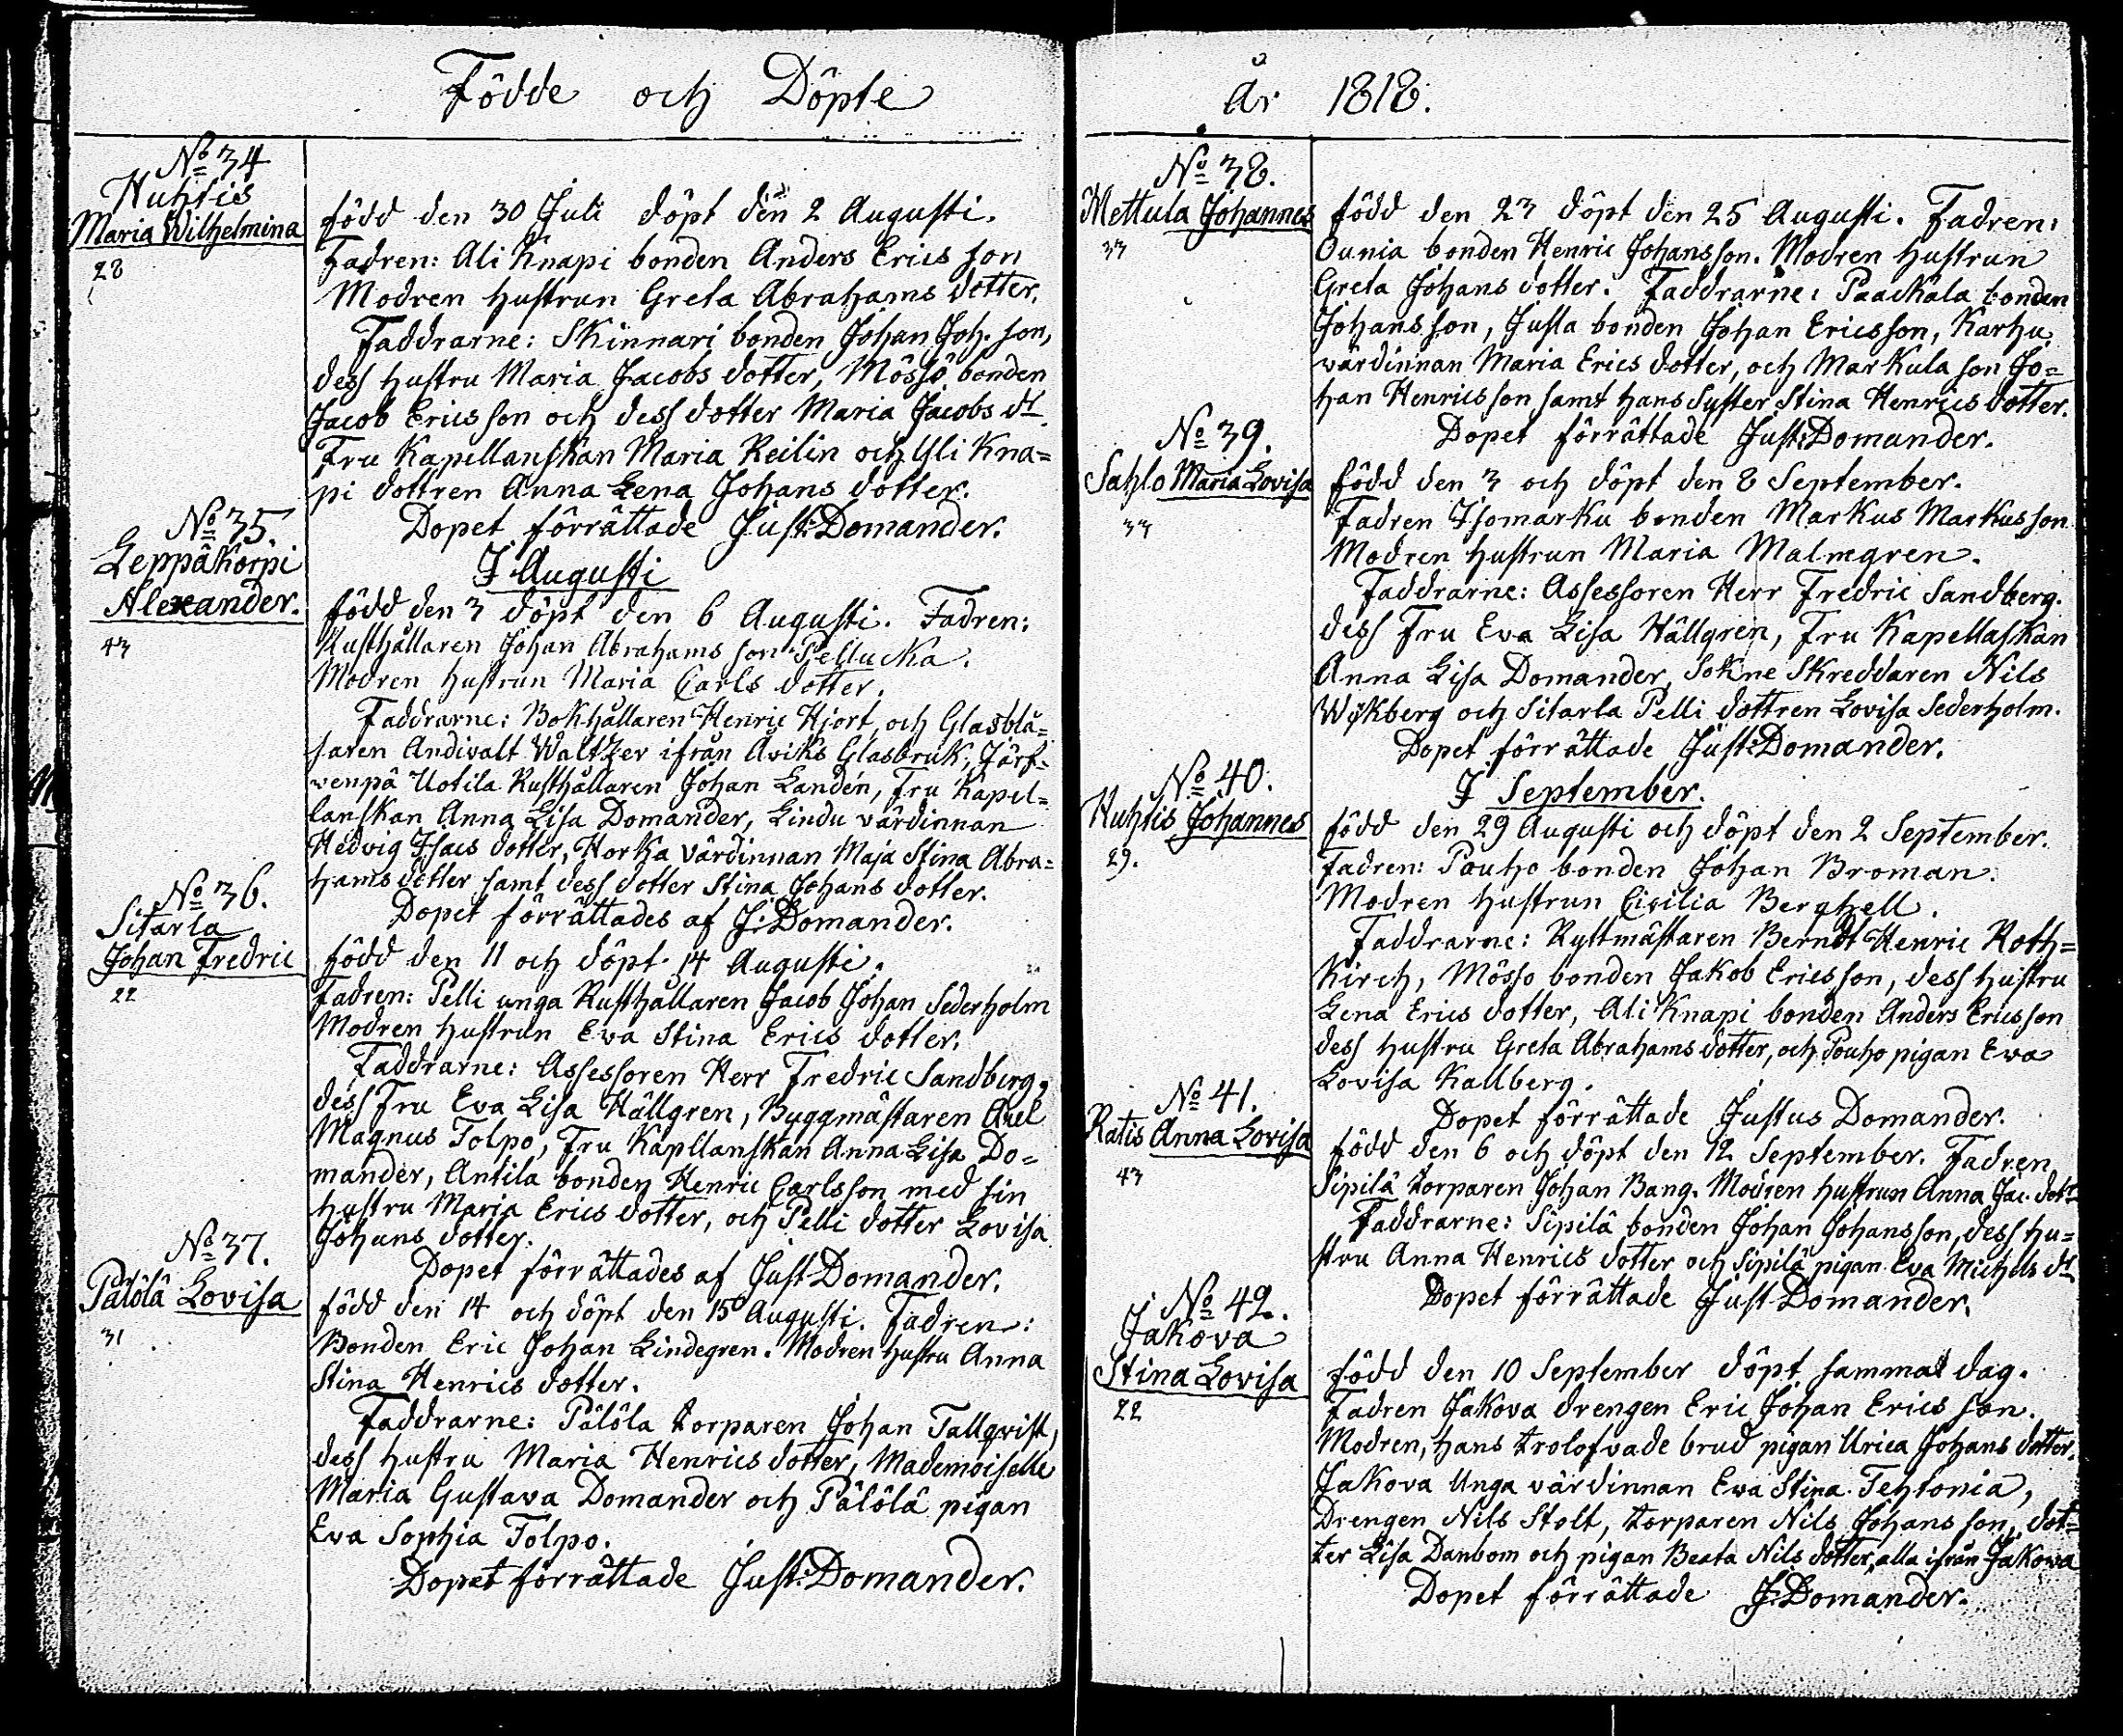 Födde och Döpte
No 34
Huhtis
Maria Wilhelmina
28
född den 30 Juli döpt den 2 Augusti.
Fadren: Ali Knapi bonden Anders Erics son
Modren hustrun Greta Abrahams dotter.
Faddrarne: Skinnari bonden Johan Joh. son,
dess hustru Maria Jacobs dotter, Mössö bonden
Jacob Ericsson och dess dotter Maria Jacobs dr
Fru Kapellanskan Maria Reilin och Yli Kna=
pi dottren Anna Lena Johans dotter.
Dopet förrättade Just: Domander.
No 35.
Leppäkorpi
Alexander.
43
I Augusti
född den 3 döpt den 6 Augusti. Fadren:
Rusthållaren Johan Abrahams son Pellucka.
Modren hustrun Maria Carls dotter.
Faddrarne: Bokhållaren Henric Hjort, och Glasblå=
saren Andivalt Waltzer ifrån Åviks Glasbruk, Järf=
wenpä Uotila Rusthållaren Johan Landén, Fru Kapel=
lanskan Anna Lisa Domander, Lindu värdinnan
Hedvig Isacs dotter, Horka värdinnan Maja Stina Abra=
hams dotter samt dess dotter Stina Johans dotter.
Dopet förrättades af J: Domander.
No 36.
Sitarla
Johan Fredric
22
född den 11 och döpt 14 Augusti.
Fadren: Pelli unga Rusthållaren Jacob Johan Sederholm
Modren hustrun Eva Stina Erics dotter.
Faddrarne: Assessoren Herr Fredric Sandberg,
dess Fru Eva Lisa Hällgren, Byggmästaren Axel
Magnus Tolpo, Fru Kapllanskan Anna Lisa Do=
mander, Antila bonden Henric Carlsson med sin
hustru Maria Erics dotter, och Pelli dotter Lovisa
Johans dotter.
Dopet förrättades af Just Domander.
No 37.
Pälölä Lovisa
31
född den 14 och döpt den 15 Augusti. Fadren:
Bonden Eric Johan Lindegren. Modren hustru Anna
Stina Henrics dotter.
Faddrarne: Pälöla torparen Johan Tallqvist,
dess hustru Maria Henrics dotter, Mademoiselle
Maria Gustava Domander och Pälölä pigan
Eva Sophia Tolpo.
Dopet förrättade Just: Domander.
År 1818.
No 38.
Mettula Johannes
33
född den 23 döpt den 25 Augusti. Fadren:
Ounia bonden Henric Johansson. Modren hustrun
Greta Johans dotter. Faddrarne: Paackala bonden
Johans son, Jusla bonden Johan Ericsson, Karhu
värdinnan Maria Erics dotter, och Markula son Jo=
han Henricsson samt hans syster Stina Henrics dotter.
Dopet förrättade Just: Domander.
No 39.
Sahlo Maria Lovisa
33
född den 3 och döpt den 8 September.
Fadren Isomarku bonden Markus Markusson
Modren hustrun Maria Malmgren.
Faddrarne: Assessoren Herr Fredric Sandberg.
dess Fru Eva Lisa Hällgren, Fru Kapellaskan
Anna Lisa Domander, Sokne Skreddaren Nils
Wykberg och Sitarla Pelli dottren Lovisa Sederholm.
Dopet förrättade Just: Domander.
I September.
No 40.
Huhtis Johannes
29.
född den 29 Augusti och döpt den 2 September.
Fadren: Pouho bonden Johan Broman.
Modren hustrun Cicilia Berghell.
Faddrarne: Ryttmästaren Berndt Henric Roth=
kirch, Mösso bonden Jakob Ericsson, dess hustru
Lena Erics dotter, Ali Knapi bonden Anders Ericsson
dess hustru Greta Abrahams dotter, och Pouho pigan Eva
Lovisa Kallberg.
Dopet förrättade Justus Domander.
No 41.
Ratis Anna Lovisa
43
född den 6 och döpt den 12 September. Fadren
Sipilä torparen Johan Bang. Modren hustrun Anna Jac. dotr
Faddrarne: Sipilä bonden Johan Johansson, dess hu=
stru Anna Henrics dotter och Sipilä pigan Eva Michels dr
Dopet förrättade Just Domander.
No 42.
Jakova
Stina Lovisa
22
född den 10 September döpt samma dag.
Fadren Jakova drengen Eric Johan Erics son.
Modren, hans trolofvade brud pigan Urica Johans dotter.
Jakova Unga värdinnan Eva Stina Tehtonia,
Drengen Nils Stolt, torparen Nils Johans son, dot=
ter Lisa Danbom och pigan Beata Nils dotter, alla ifrån Jakowa
Dopet förrättade J. Domander.